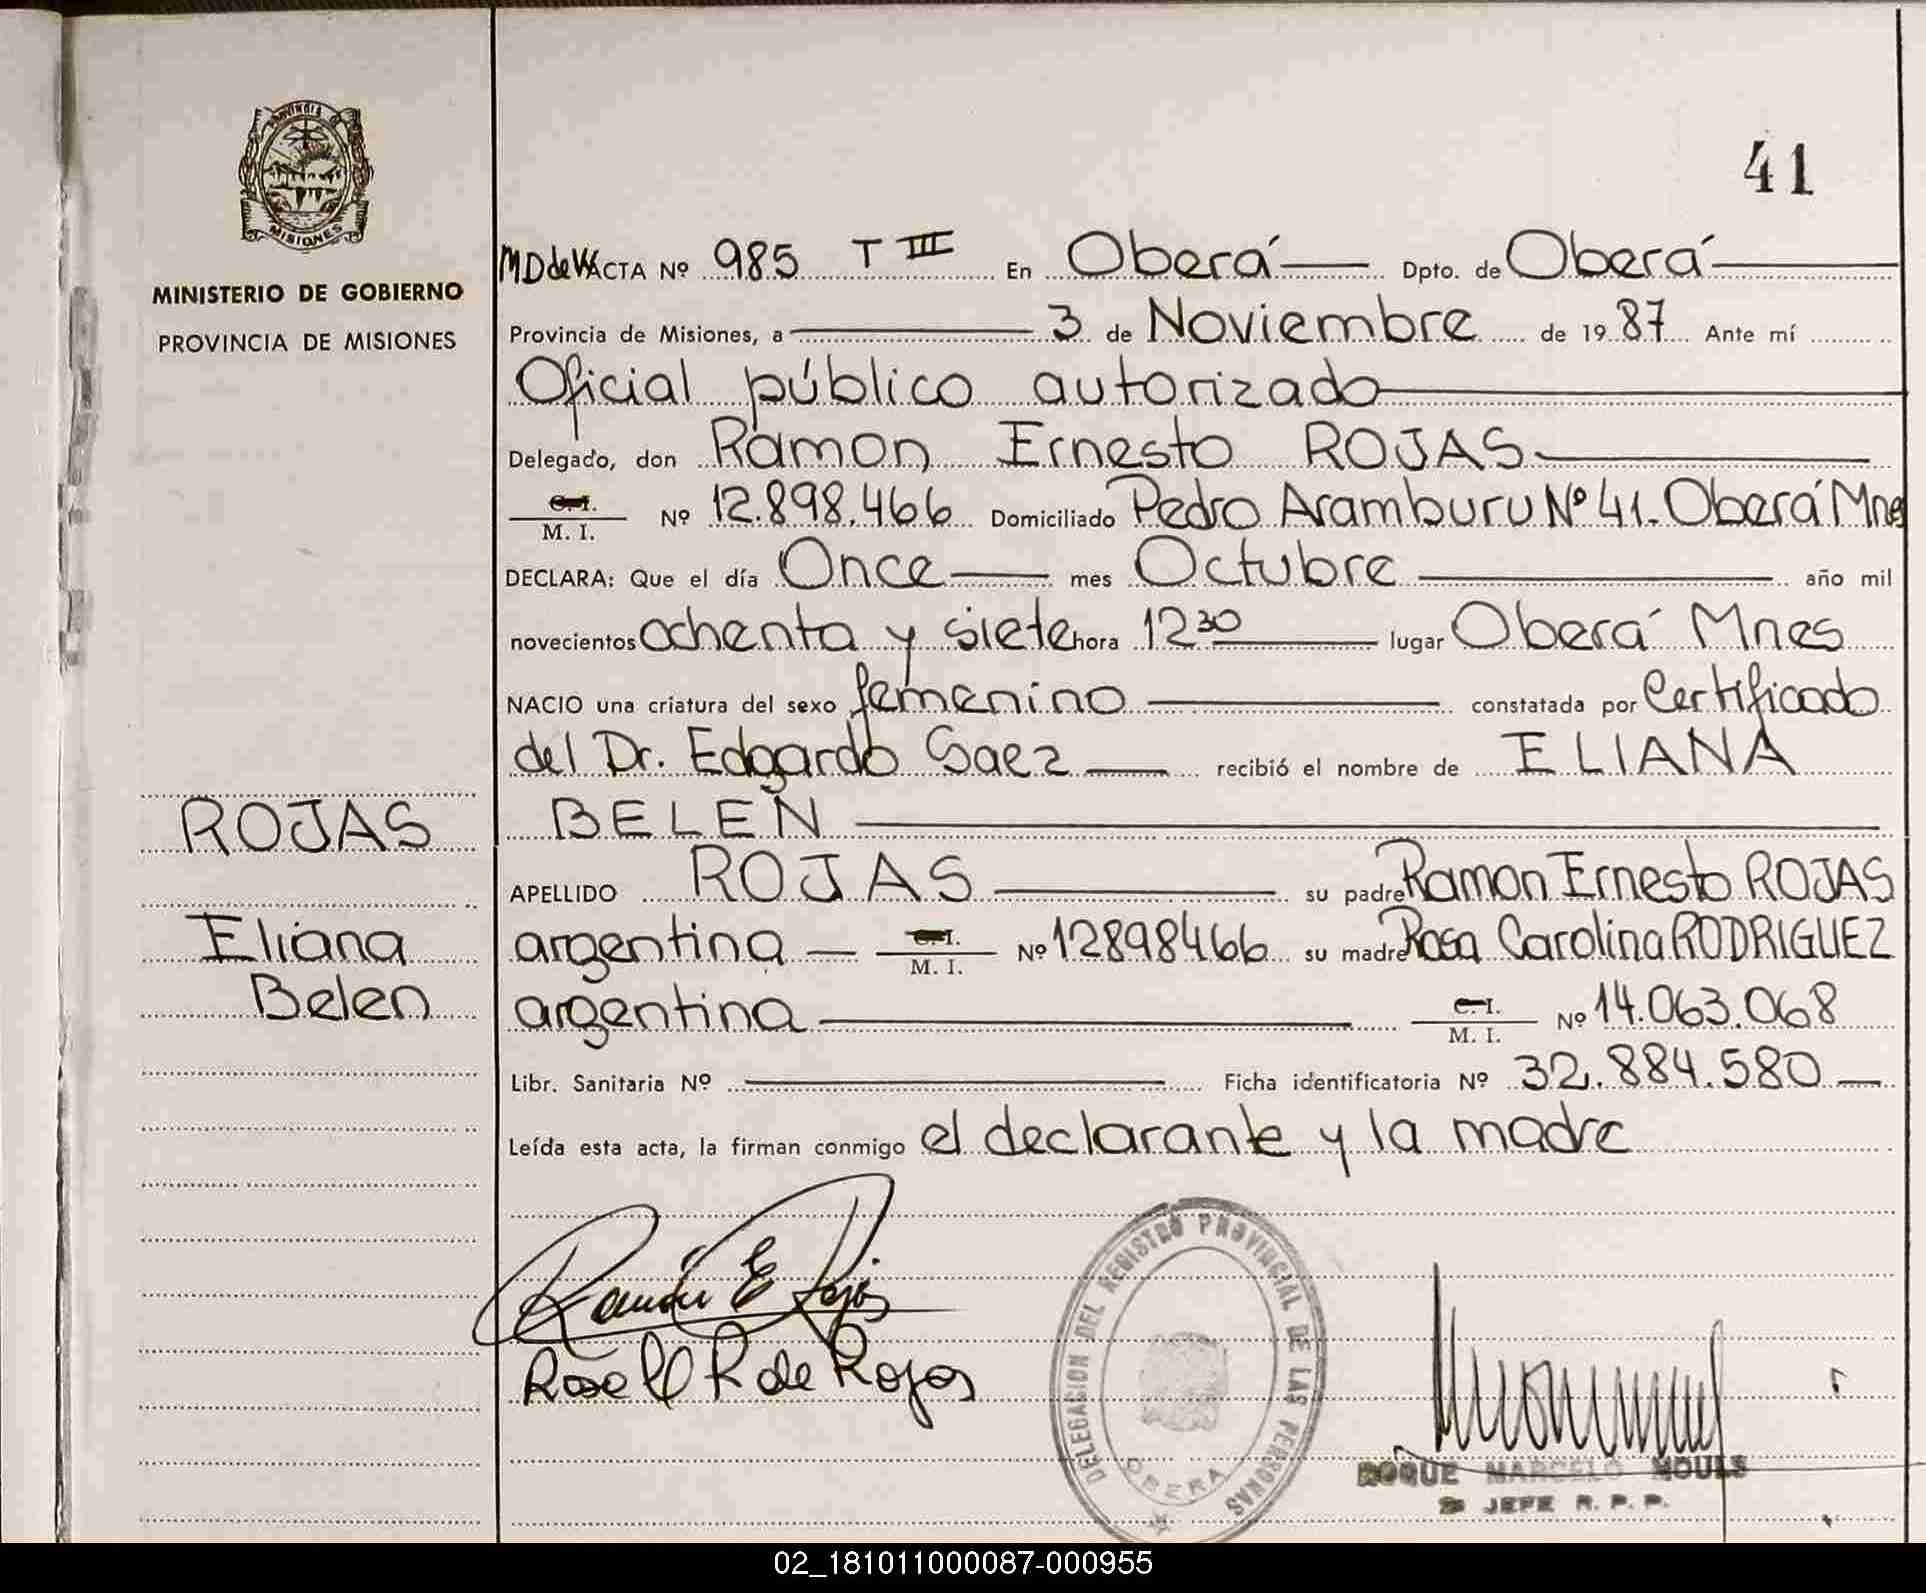 PROVINCIA
MISIONES
MINISTERIO DE GOBIERNO
PROVINCIA DE MISIONES
ROJAS
Eliana
Belen
41
ACTA Nº 985 T III En Oberá Dpto. de Oberá
Provincia de Misiones, a 3 de Noviembre de 1987 Ante mí
Oficial público autorizado
Delegado, don Ramon Ernesto ROJAS
C. I.
M. I. Nº 12.898.466 Domiciliado Pedro Aramburu Nº 41. Oberá Mnes
DECLARA: Que el día Once mes Octubre año mil
novecientos ochenta y siete hora 12 30 lugar Oberá Mnes
NACIO una criatura del sexo femenino constatada por Certificado
del Dr. Edgardo Saez recibió el nombre de ELIANA
BELEN
APELLIDO ROJAS su padre Ramon Ernesto ROJAS
argentina C. I. M. I. Nº 12898466 su madre Rosa Carolina RODRIGUEZ
argentina C. I. M. I. Nº 14.063.068
Libr. Sanitaria Nº Ficha identificatoria Nº 32.884.580
Leída esta acta, la firman conmigo el declarante y la madre
Ramón E Rojas
R de Rojas
DELEGACION DEL REGISTRO PROVINCIAL DE LAS PERSONAS
OBERA
ROQUE MARCELO MOULS
JEFE R. P. P.
02_181011000087-000955